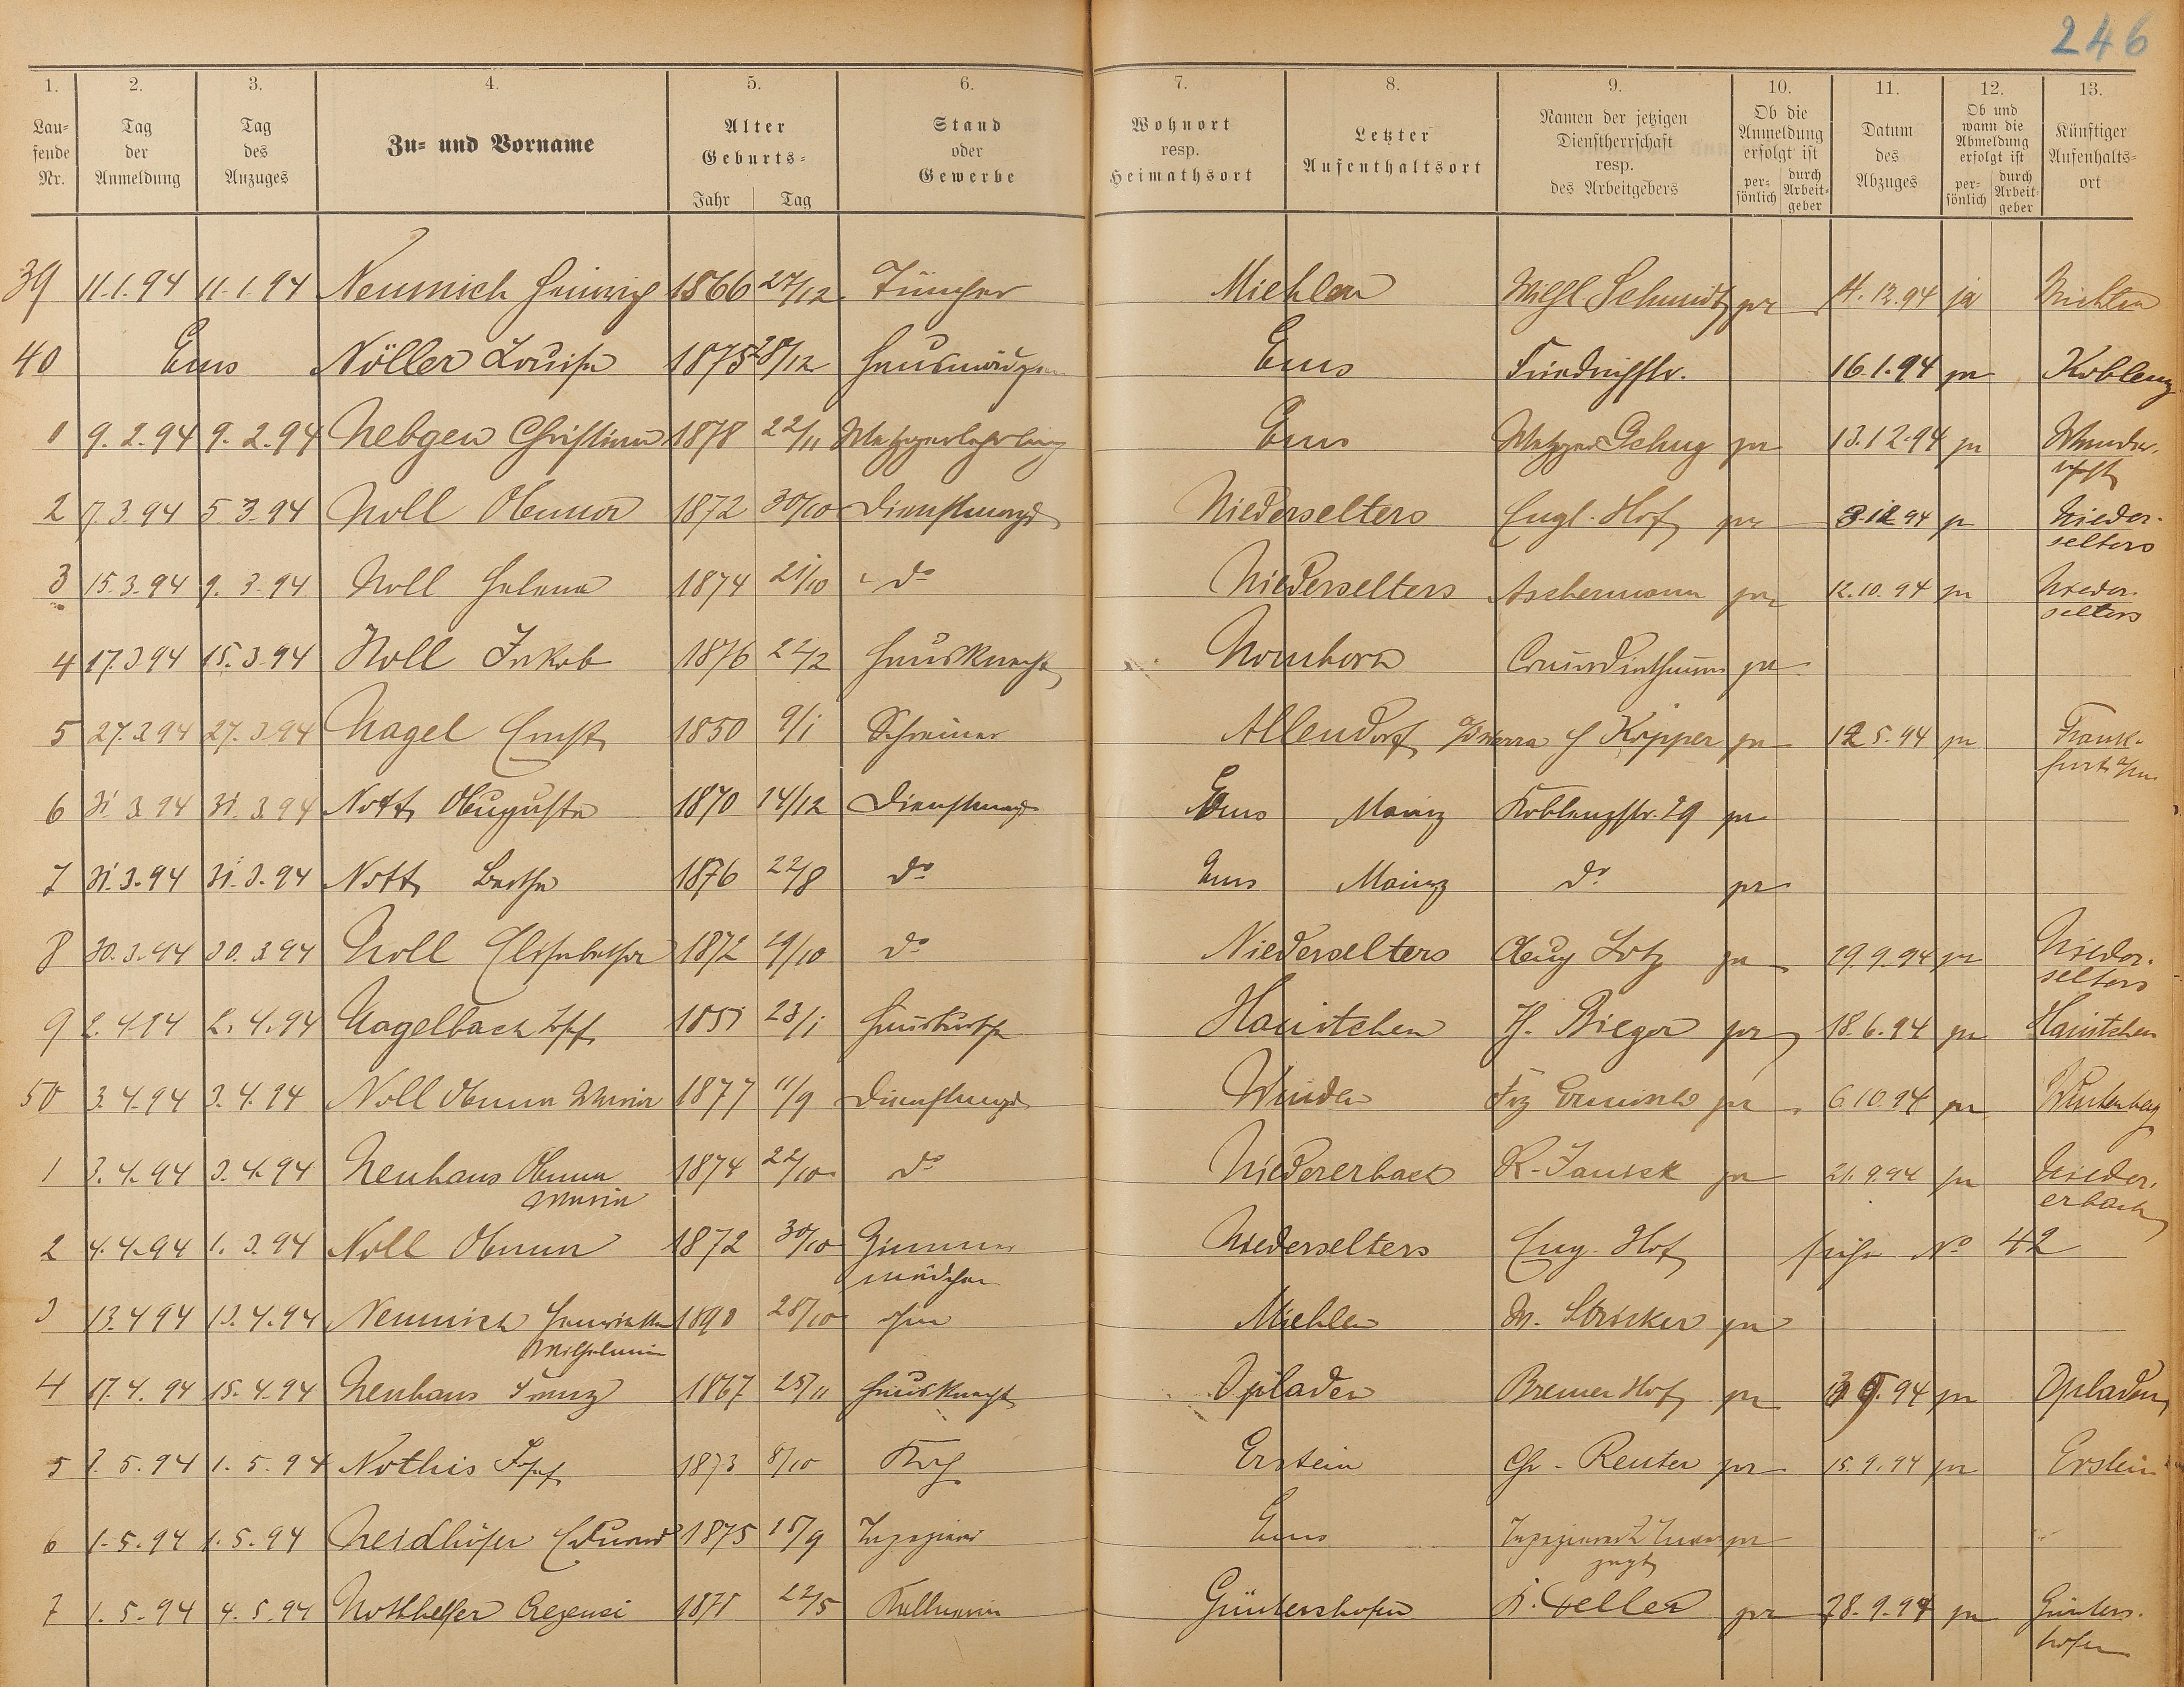 246
1. 2. 3. 4. 5. 6. 7. 8. 9. 10. 11. 12. 13.
Lau-
fende
Nr.
Tag
der
Anmeldung
Tag
des
Anzuges
Zu- und Vorname
Alter
Geburts-
Jahr Tag
Stand
oder
Gewerbe
Wohnort
resp.
Heimathsort
Letzter
Aufenthaltsort
Namen der jetzigen
Dienstherrschaft
resp.
des Arbeitgebers
Ob die
Anmeldung
erfolgt ist
per-
sönlich
durch
Arbeit-
geber
Datum
des
Abzuges
Ob und
wann die
Abmeldung
erfolgt ist
per-
sönlich
durch
Arbeit-
geber
Künftiger
Aufenhalts-
ort
39 11.1.94 11.1.94 Neumich Heinrich 1866 27/12 Tüncher Miehlen Wilhl. Schmidt pr 12.94 ja Miehlen
40 Ems Nöller Louise 1875 28/12 Hausmädchen Ems Friedrichstr. 16.1.94 pr Koblenz
1 9.2.94 9.2.94 Nebgen Christian 1878 22/11 Metzgerlehrling Ems Metzger Schug pr 13.12.94 pr
2 7.3.94 5.3.94 Noll Anna 1872 30/10 Dienstmagd Niederselters Engl. Hof pr 94 pr Nieder-
selters
3 15.3.94 9.3.94 Noll Helena 1874 21/10 do Niederselters Aschermann pr 12.10.94 pr Nieder-
selters
4 17.3.94 15.3.94 Noll Jakob 1876 22/2 Hausknecht Nomborn pr
5 27.3.94 27.3.94 Nagel Ernst 1850 9/1 Schreiner Allendorf a/d Werra H Küpper pr 12 5.94 pr Frank-
furt a/m
6 31.3.94 31.3.94 Nott Auguste 1870 14/12 Dienstmagd Ems Mainz Koblenzstr. 29 pr
7 31.3.94 31.3.94 Nott Bertha 1876 22/8 do Ems Mainz do pr
8 30.3.94 30.3.94 Noll Elisabetha 1872 29/10 do Niederselters Aug Lotz pr 29.9.94 pr Nieder-
selters
9 2.4.94 2.4.94 Nagelbach Josef 1851 23/1 Hausbursche Haintchen H. Bieger pr 18.6.94 pr Haintchen
50 3.4.94 3.4.94 Noll Anna Maria 1877 11/9 Dienstmagd Winden Frz Ermisch pr 6.10.94 pr
1 3.4.94 3.4.94 Neuhaus Anna
Maria 1874 22/10 do Niedererbach K. Janisk pr 21.9.94 pr Nieder-
erbach
2 4.4.94 1.3.94 Noll Anna 1872 30/10 Zimmer
mädchen Niederselters Eng. Hof siehe No 42
3 13.4.94 13.4.94 Neumich Henriette
Wilhelmine 28/10 ohne Miehlen W. Stricker pr
4 17.4.94 15.4.94 Neuhaus Franz 1867 25/11 Hausknecht Opladen Bremer Hof pr 94 pr Opladen
5 1.5.94 1.5.94 Nothis Josef 1873 8/10 Koch Erstein Chr. Reuter pr 15.9.94 pr Erstein
6 1.5.94 1.5.94 Neidhöfer Eduard 1875 15/9 Tapezierer Ems Tapezierer pr
7 1.5.94 4.5.94 Nothhelfer Cregenci 1871 22/5 Kellnerin Güntershofen K. Feller pr 28.9.94 pr Günters-
hofen